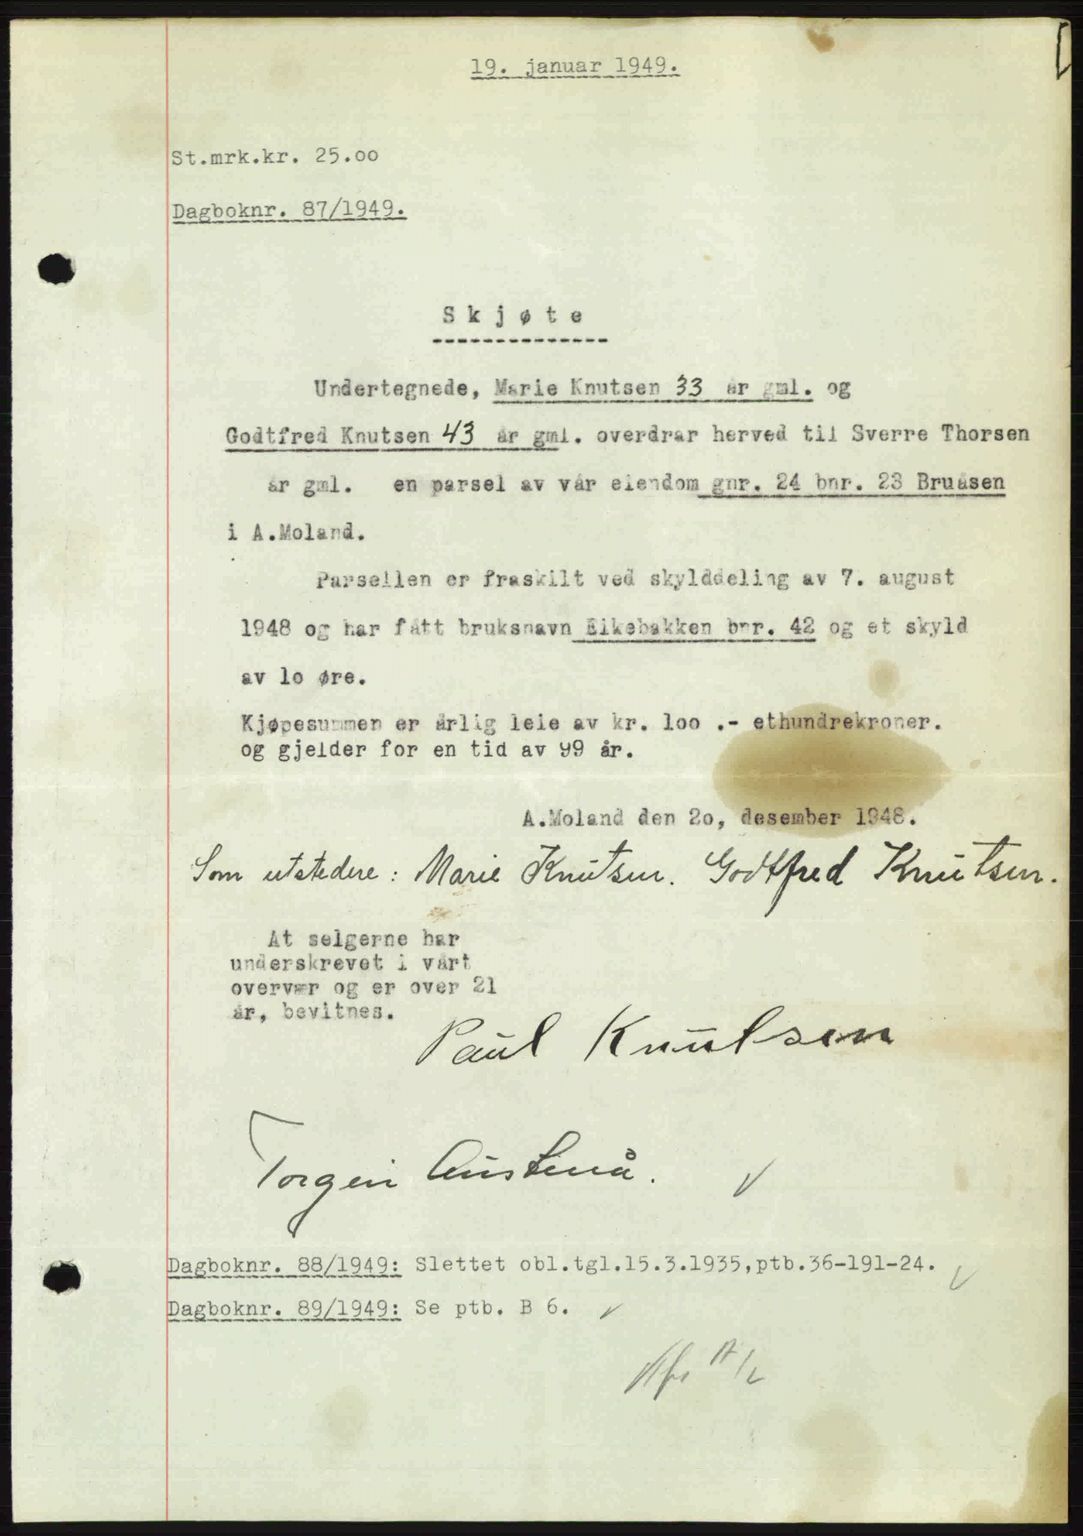 19. januar 1949.
St.mrk.kr. 25.oo
Dagboknr. 87/1949.
S k j ø t e
Undertegnede, Marie Knutsen 33 år gml. og
Godtfred Knutsen 43 år gml. overdrar herved til Sverre Thorsen
år gml. en parsel av vår eiendom gnr. 24 bnr. 23 Bruåsen
i A.Moland.
Parsellen er fraskilt ved skylddeling av 7. august
1948 og har fått bruksnavn Eikebakken bnr. 42 og et skyld
av lo øre.
Kjøpesummen er årlig leie av kr. loo .- ethundrekroner.
og gjelder for en tid av 99 år.
A.Moland den 2o, desember 1948.
Som utstedere: Marie Knutsen. Godtfred Knutsen.
At selgerne har
underskrevet i vårt
overvær og er over 21
år, bevitnes.
Paul Knutsen
Torgeir Austenå.
Dagboknr. 88/1949: Slettet obl.tgl.15.3.1935,ptb.36-191-24.
Dagboknr. 89/1949: Se ptb. B 6.